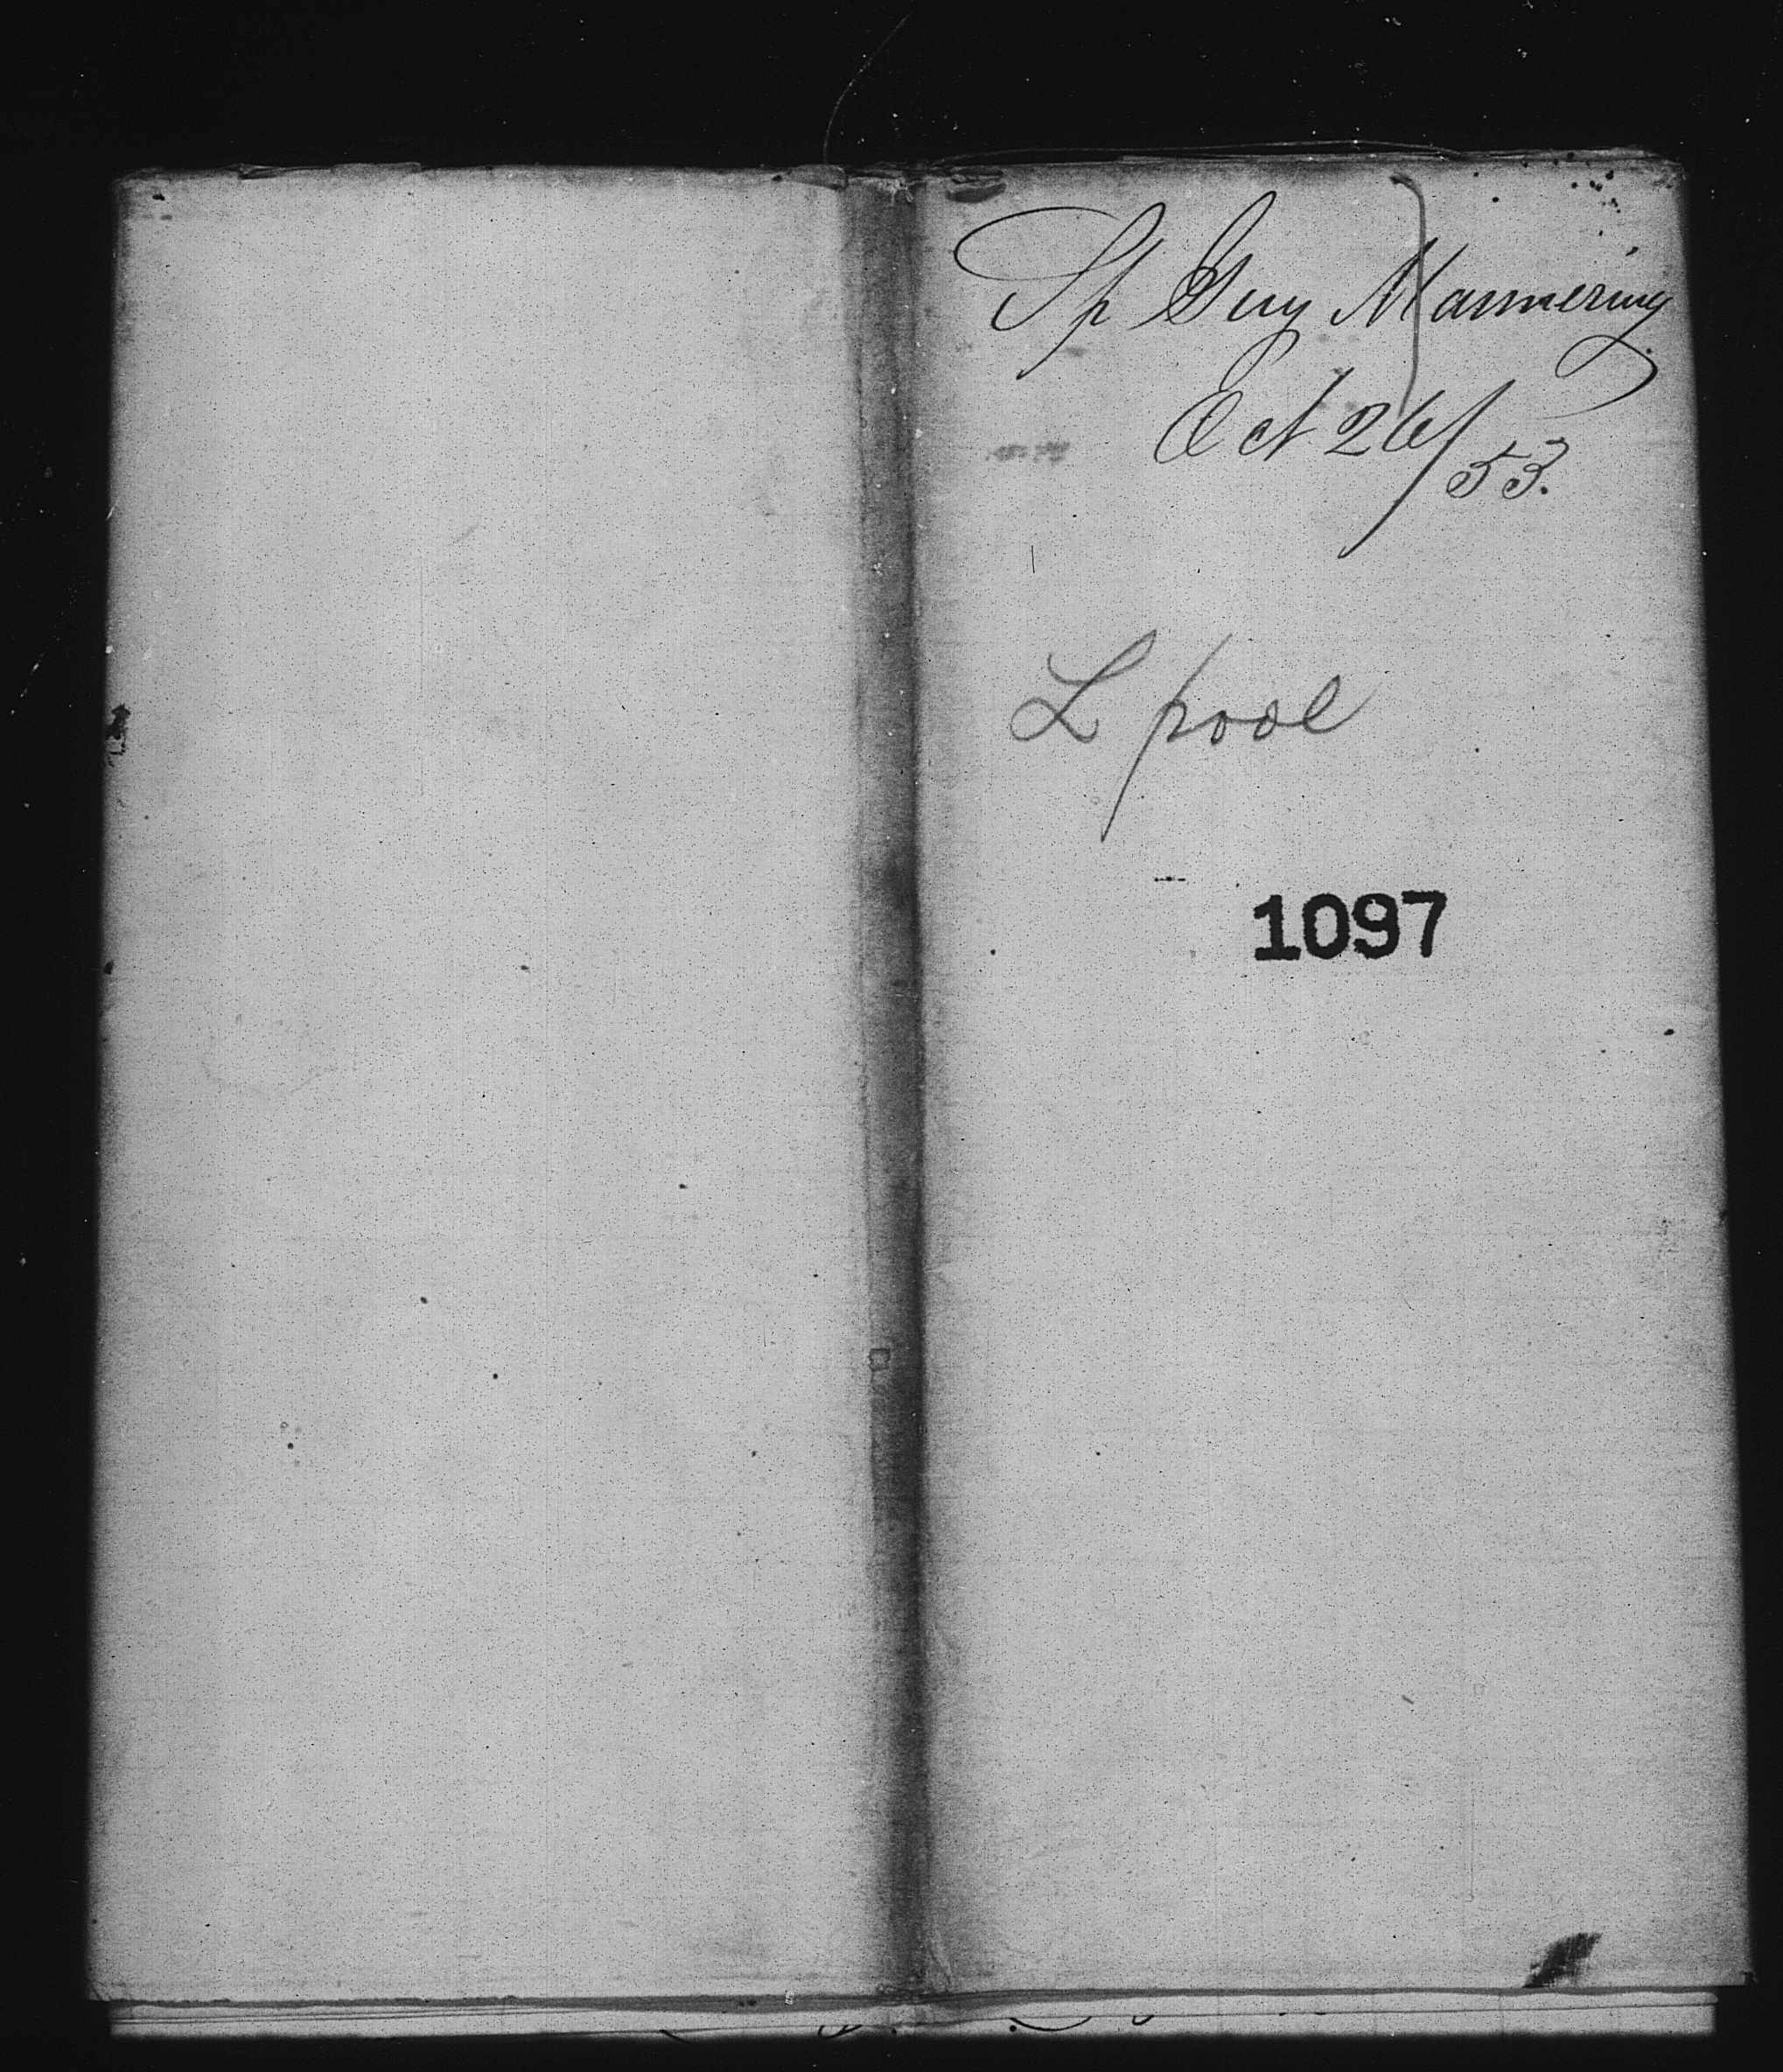 Sp Guy Mannering
Oct 26/53.
L pool
1097